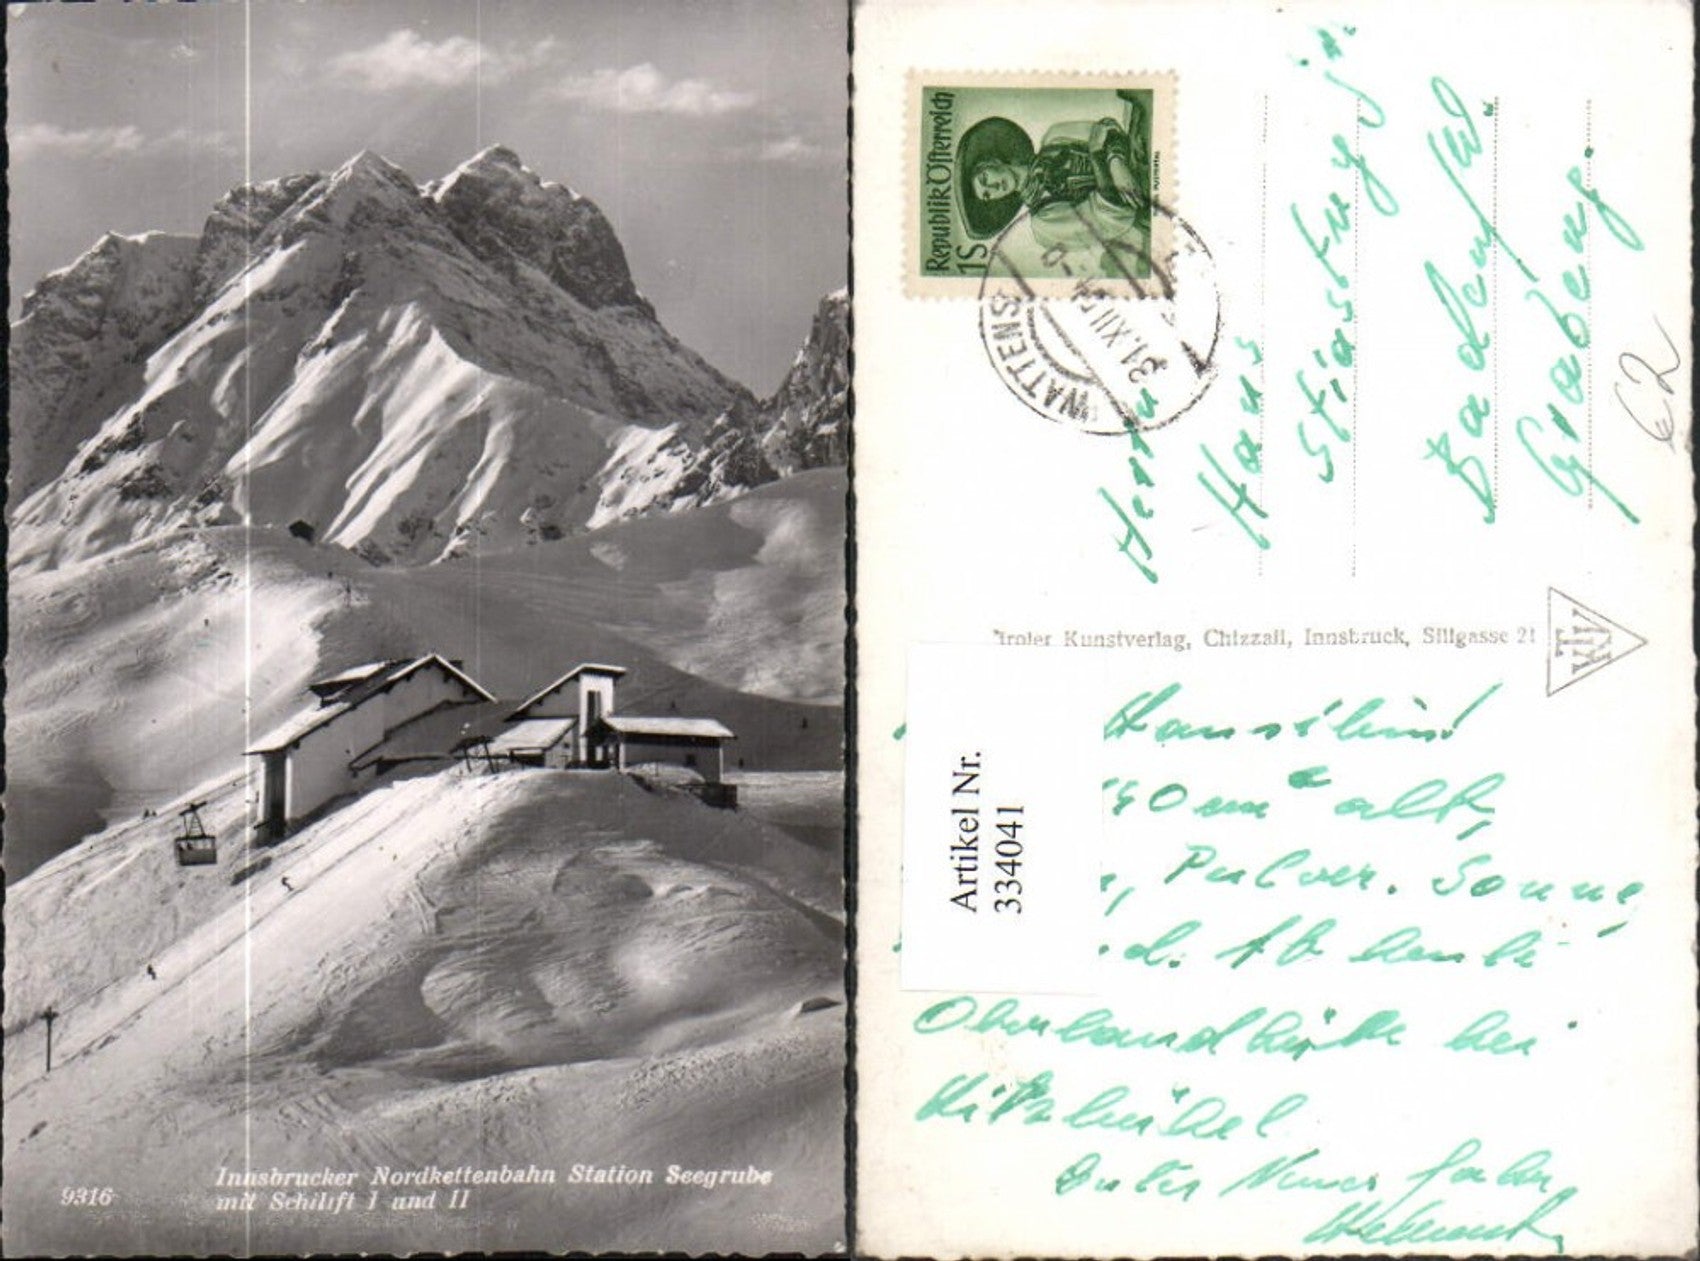 Innsbrucker Nordkettenbahn Station Seegrube
9316 mit Schilift I und II
Republik Österreich
1S
WATTENS
31.XII.54
Herrn
Hans
Stiasny jr.
Baden/W.
Grabeng.
62
Tiroler Kunstverlag, Chizzali, Innsbruck, Sillgasse 21
Artikel Nr.
334041
alt,
Pulver. Sonne,
d.
Oberlandhütte bei
Kitzbühel
Gutes Neues Jahr,